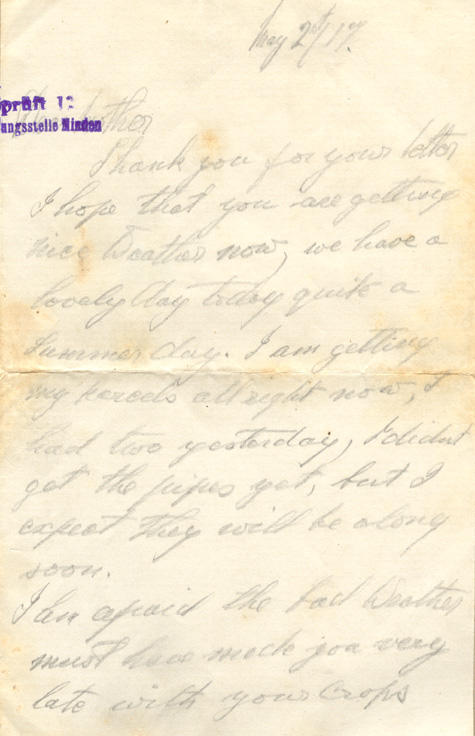 May 2nd/17.
prüft 12
ungsstelle Minden
Mother
Thank you for your letter
I hope that you are getting
nice Weather now, we have a
lovely day today quite a
summer day. I am getting
my parcels allright now, I
had two yesterday, I didnt
get the pipes yet, but I
expect they will be along
soon.
I am afraid the bad Weather
must have made you very
late with your Crops